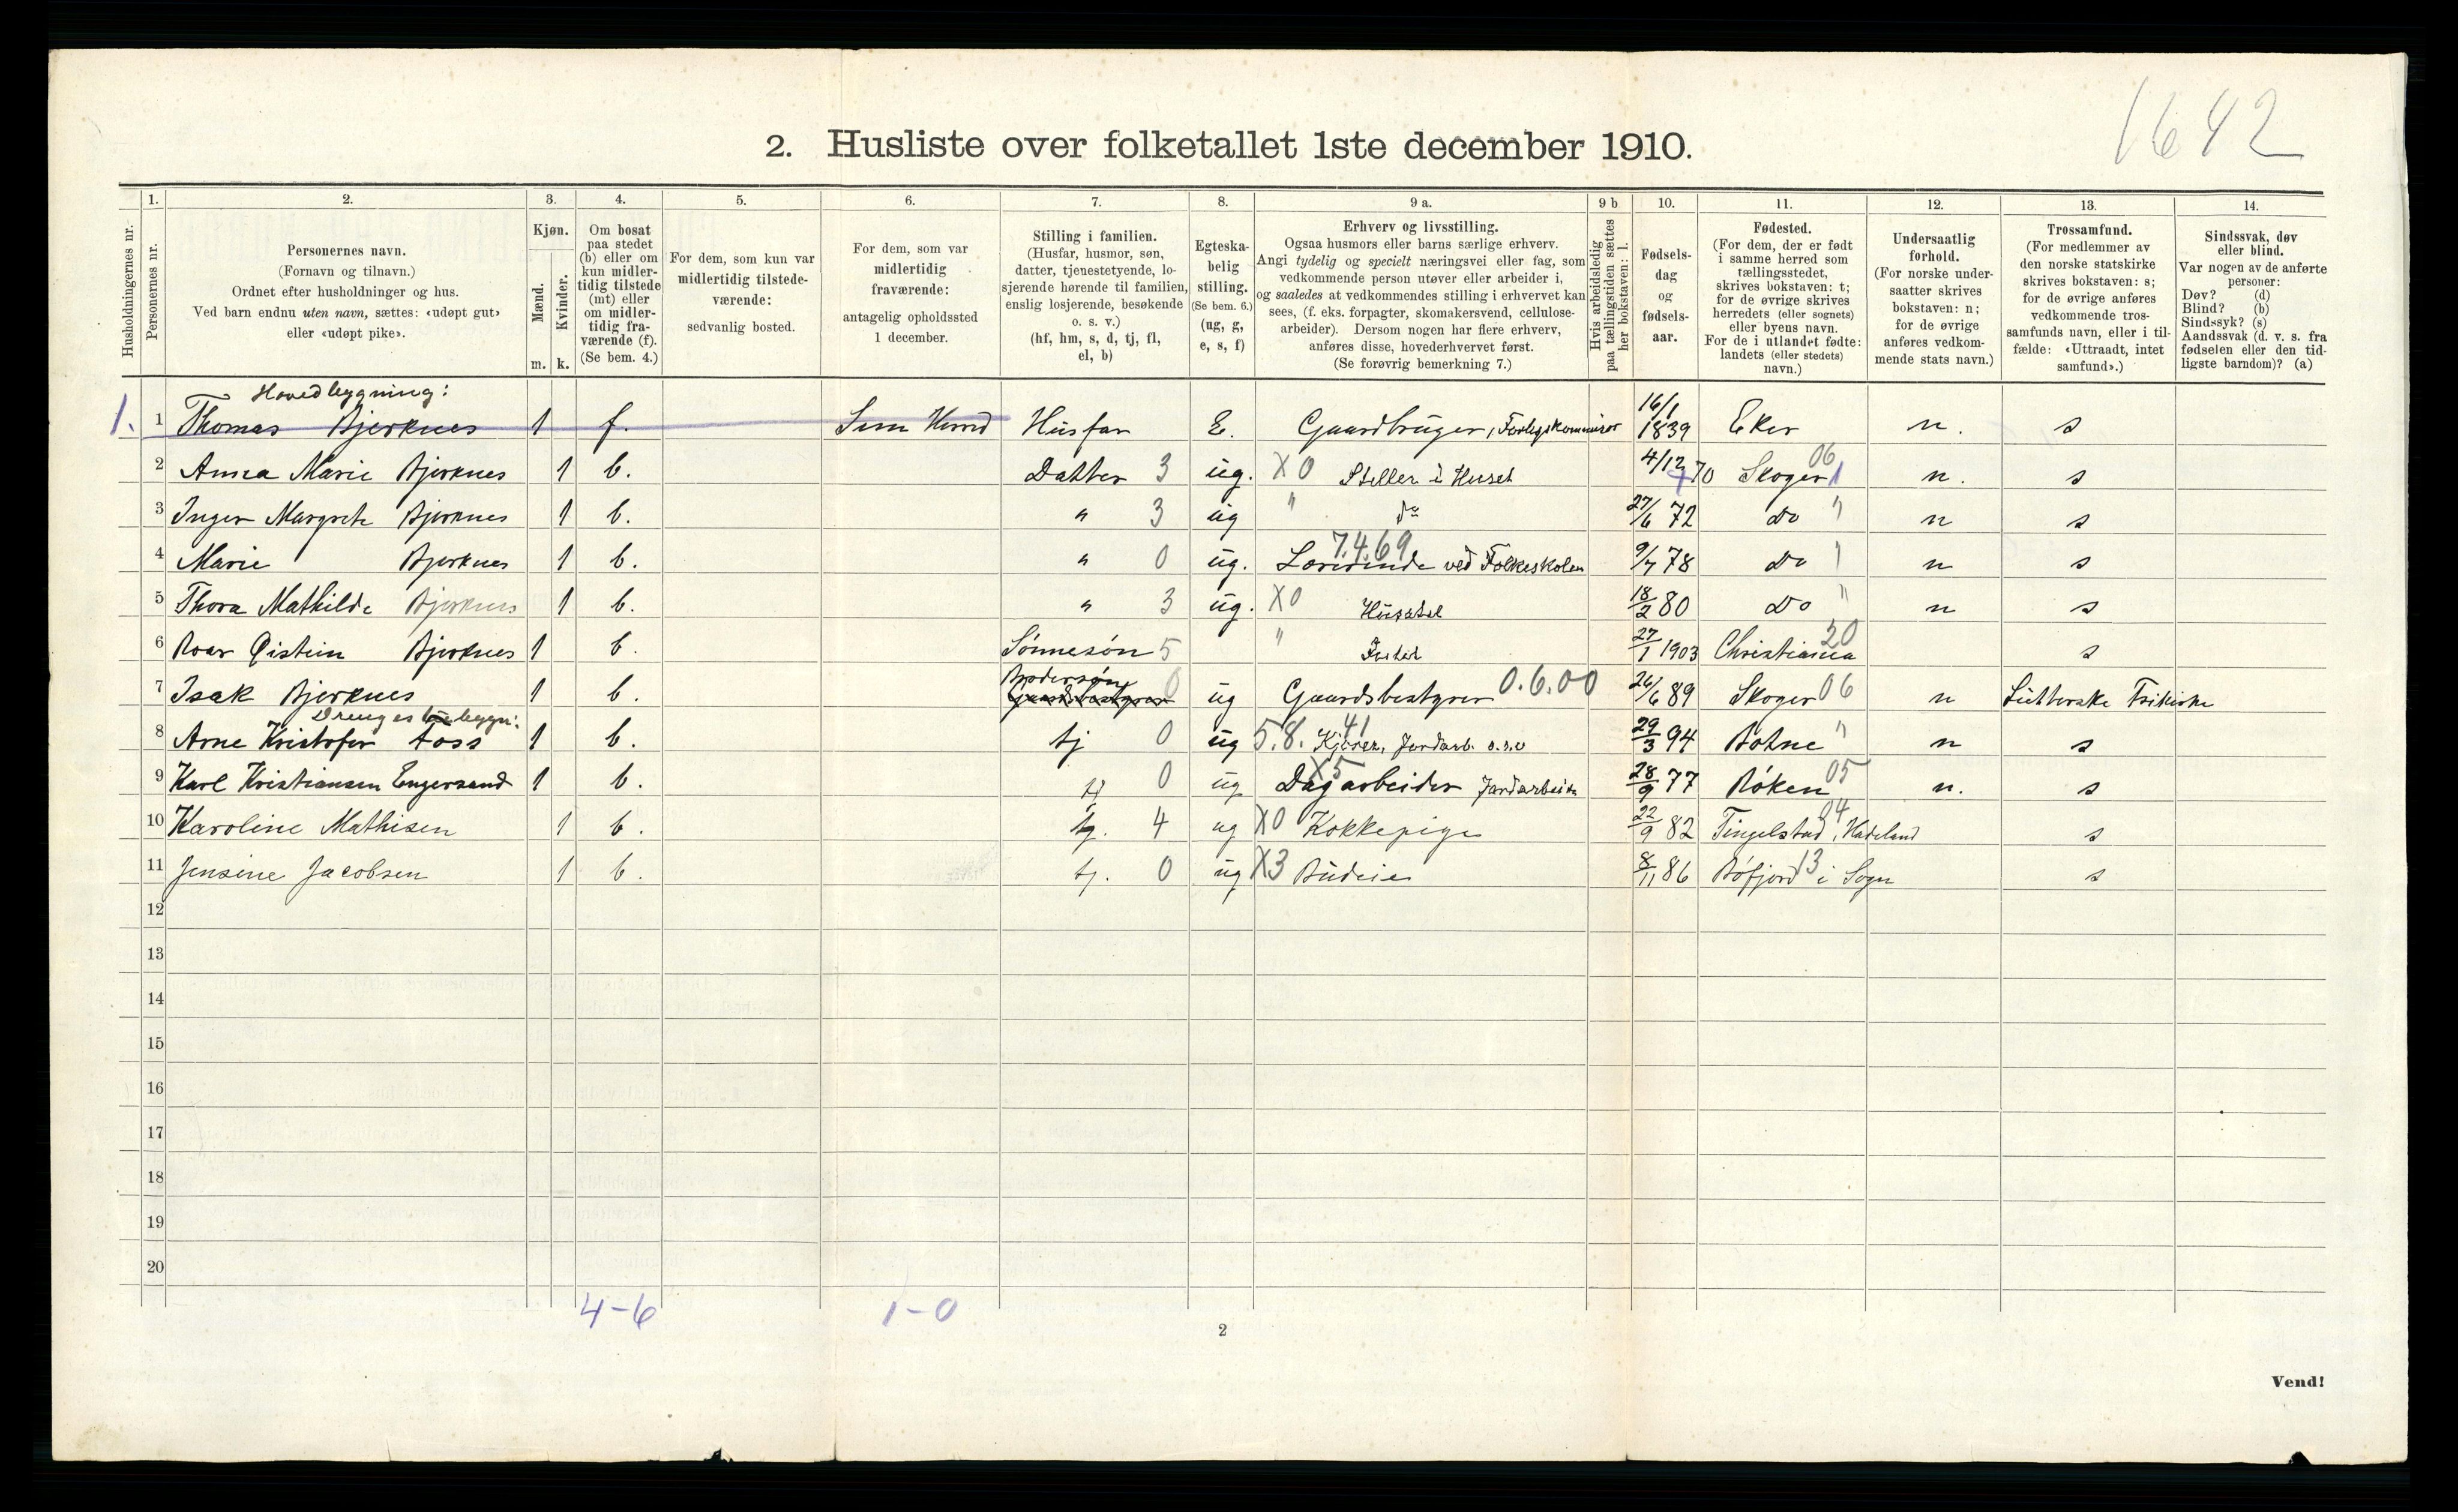 1642
2. Husliste over folketallet 1ste december 1910.
Husholdningernes nr.
1. Personernes nr.
2. Personernes navn.
(Fornavn og tilnavn.)
Ordnet efter husholdninger og hus.
Ved barn endnu uten navn, sættes: «udøpt gut»
eller «udøpt pike».
3. Kjøn.
Mænd. m.
Kvinder. k.
4. Om bosat
paa stedet
(b) eller om
kun midler-
tidig tilstede
(mt) eller
om midler-
tidig fra-
værende (f).
(Se bem. 4.)
5. For dem, som kun var
midlertidig tilstede-
værende:
sedvanlig bosted.
6. For dem, som var
midlertidig
fraværende:
antagelig opholdssted
1 december.
7. Stilling i familien.
(Husfar, husmor, søn,
datter, tjenestetyende, lo-
sjerende hørende til familien,
enslig losjerende, besøkende
o. s. v.)
(hf, hm, s, d, tj, fl,
el, b)
8. Egteska-
belig
stilling.
(Se bem. 6.)
(ug, g,
e, s, f)
9 a. Erhverv og livsstilling.
Ogsaa husmors eller barns særlige erhverv.
Angi tydelig og specielt næringsvei eller fag, som
vedkommende person utøver eller arbeider i,
og saaledes at vedkommendes stilling i erhvervet kan
sees, (f. eks. forpagter, skomakersvend, cellulose-
arbeider). Dersom nogen har flere erhverv,
anføres disse, hovederhvervet først.
(Se forøvrig bemerkning 7.)
9 b Hvis arbeidsledig
paa tællingstiden sættes
her bokstaven: l.
10. Fødsels-
dag
og
fødsels-
aar.
11. Fødested.
(For dem, der er født
i samme herred som
tællingsstedet,
skrives bokstaven: t;
for de øvrige skrives
herredets (eller sognets)
eller byens navn.
For de i utlandet fødte:
landets (eller stedets)
navn.)
12. Undersaatlig
forhold.
(For norske under-
saatter skrives
bokstaven: n;
for de øvrige
anføres vedkom-
mende stats navn.)
13. Trossamfund.
(For medlemmer av
den norske statskirke
skrives bokstaven: s;
for de øvrige anføres
vedkommende tros-
samfunds navn, eller i til-
fælde: «Uttraadt, intet
samfund».)
14. Sindssvak, døv
eller blind.
Var nogen av de anførte
personer:
Døv? (d)
Blind? (b)
Sindssyk? (s)
Aandssvak (d. v. s. fra
fødselen eller den tid-
ligste barndom)? (a)
Hovedbygning:
1. 1 Thomas Bjerknes 1 f. Sem Herred Husfar E. Gaardbruger, 16/1 1839 Eker n. s
2 Anna Marie Bjerknes 1 b. Datter 3 ug. X0 Steller i Huset 4/12 70 Skoger 06 1 n. s
3 Inger Margrete Bjerknes 1 b. " 3 ug " do 27/6 72 Do " n s
4 Marie Bjerknes 1 b. " 0 ug. 7.4.69 Lærerinde ved Folkeskolen 9/7 78 Do " n s
5 Thora Mathilde Bjerknes 1 b. " 3 ug. X0 Husstel 18/2 80 Do " n s
6 Roar Øistein Bjerknes 1 b. Sønnesøn 5 " 27/1 1903 Christiania 20 s
7 Isak Bjerknes 1 b. Brodersøn 0 ug Gaardsbestyrer 0.6.00 26/6 89 Skoger 06 n Lutherske Frikirke
8 Arne Kristofer Foss 1 b. tj 0 ug 5.8.41 Kjører, Jordarb. o.s.v 29/3 94 Botne " n s
9 Karl Kristiansen Engersand 1 b. tj 0 ug X5 Dagarbeider Jordarbeide 28/9 77 Röken 05 n. s
10 Karoline Mathisen 1 b. tj. 4 ug X0 Kokkepige 22/9 82 Tingelstad, Hadeland 04 s
11 Jensine Jacobsen 1 b. tj. 0 ug X3 Budeie 8/11 86 Böfjord i Sogn 13 s
12
13
14
15
16
17
18
19
20
4-6 1-0
2
Vend!